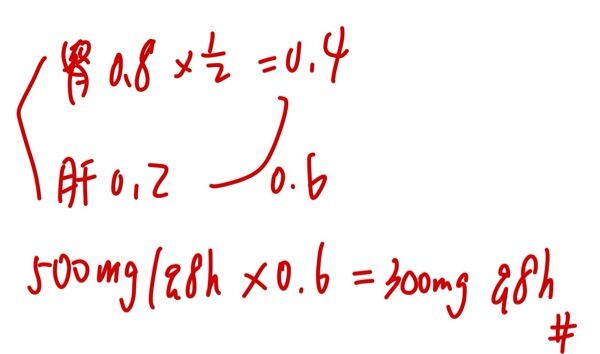 腎 0.8 × 1/2 = 0.4
肝 0.2 0.6
500mg/q8h × 0.6 = 300mg q8h
#